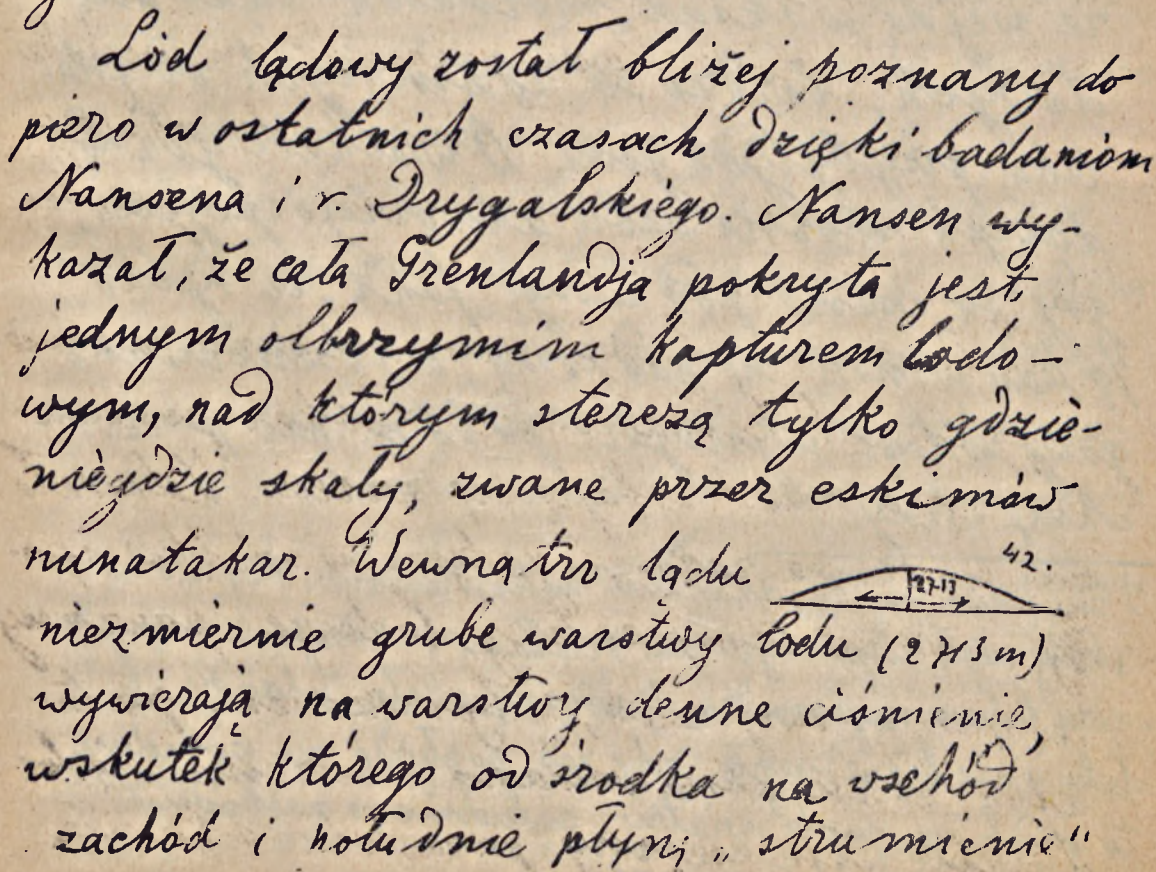 Lód lądowy został bliżej poznany do
piero w ostatnich czasach dzięki badaniom
Nansena i v. Drygalskiego. Nansen wy-
kazał, że cała Grenlandja pokryta jest
jednym olbrzymim kapturem lodo-
wym, nad którym sterczą tylko gdzie-
niegdzie skały, zwane przez eskimów
nunatakar. Wewnątrz lądu
42.
2713
niezmiernie grube warstwy lodu (2713 m)
wywierają na warstwy denne ciśnienie,
wskutek którego od środka na wschód
zachód i południe płyną „strumienie"